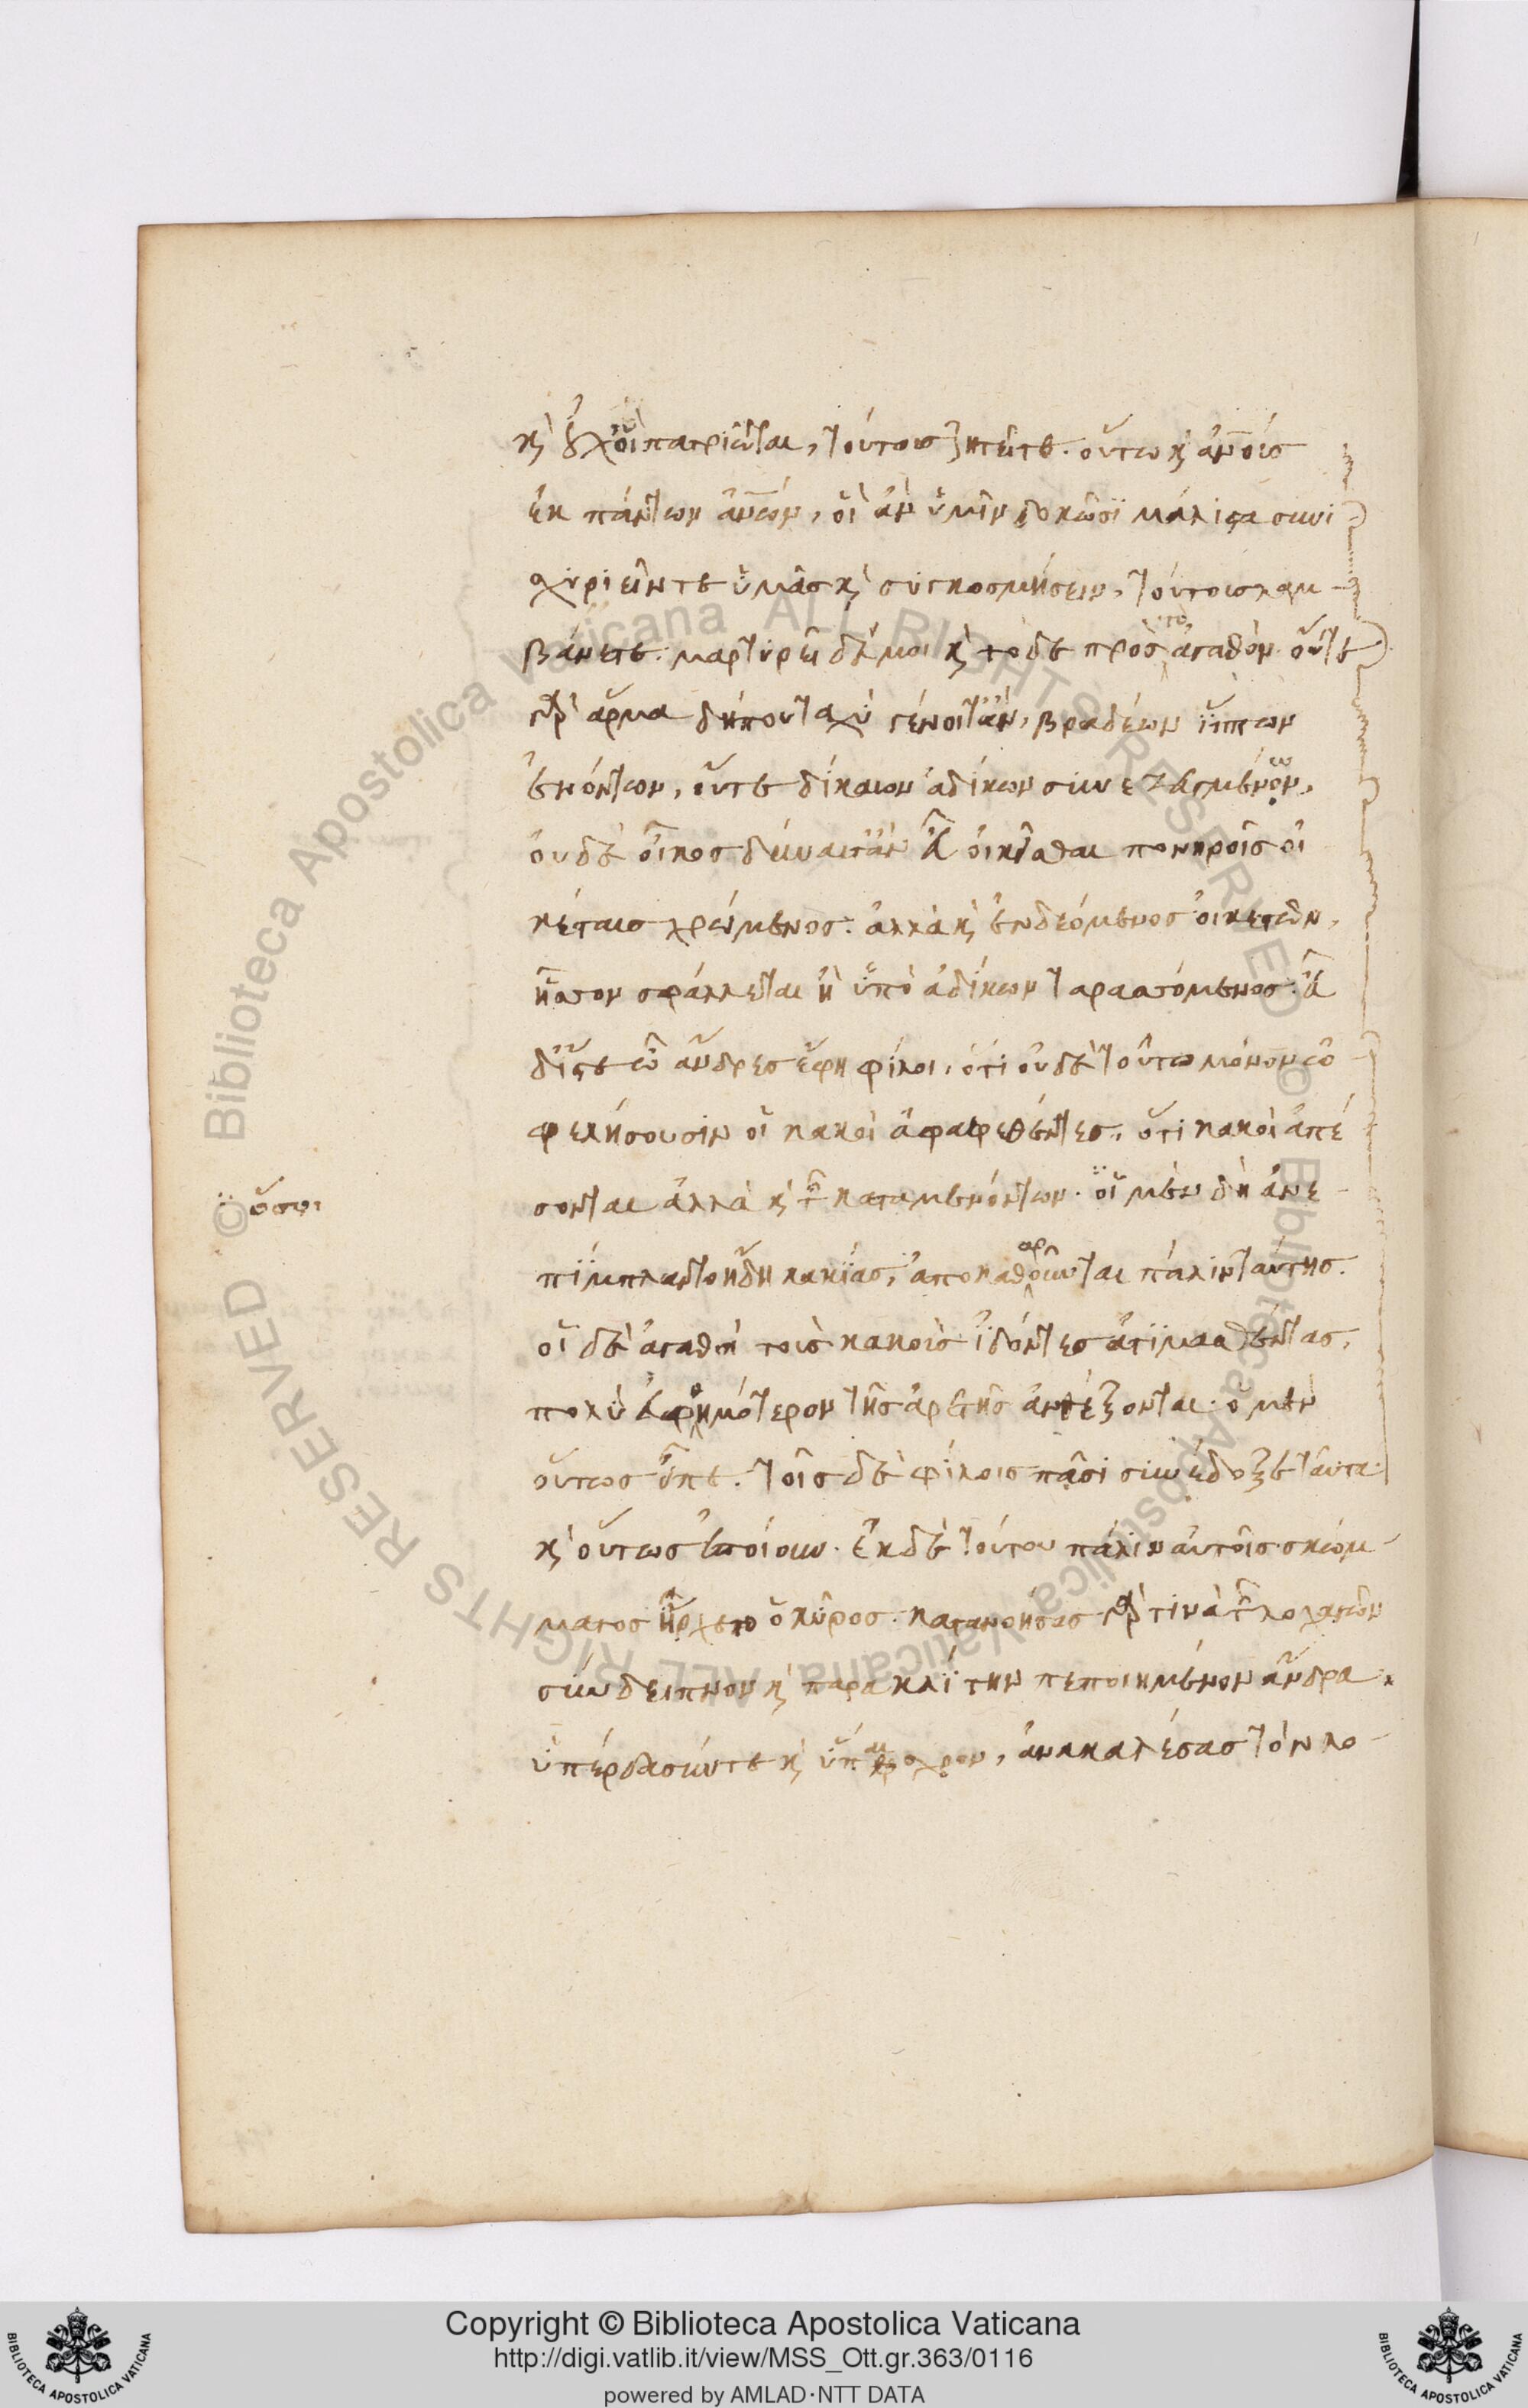 κ̀ οὐχ οἳ πατριῶται, τούτους ζητεῖτε. οὕτω κ̀ ἀν̅οις
ἐκ πάντων ἀν̅ων, οἳ ἂν ὑμῖν δοκῶσι μάλιστα συνι
σχυριεῖν τε ὑμᾶς κ̀ συγκοσμήσειν, τούτοις λαμ-
βάνετε. μαρτυρεῖ δέ μοι κ̀ τόδε πρὸς τὸ ἀγαθόν. οὔτε
γὰρ ἅρμα δήπου ταχὺ γένοιτ' ἂν, βραδέων ἵππων
ἐνόντων, οὔτε δίκαιον ἀδίκων συνεζευγμένων,
οὐδὲ οἶκος δύναιτ' ἂν εὖ οἰκεῖσθαι πονηροῖς οἰ
κέταις χρώμενος. ἀλλὰ κ̀ ἐνδεόμενος οἰκετῶν,
ἧσσον σφάλλεται ἢ ὑπὸ ἀδίκων ταρασσόμενος. εὖ
δ' ἴστε ὦ ἄνδρες ἔφη φίλοι, ὅτι οὐδὲ τοῦτο μόνον ὠ
φελήσουσιν οἱ κακοὶ ἀφαιρεθέντες, ὅτι κακοὶ ἀπέ
σονται ἀλλὰ κ̀ τῶν καταμενόντων. οἳ μὲν δὴ ἀνε-
πίμπλαντο ἤδη κακίας, ἀποκαθαροῦνται πάλιν ταύτης.
οἱ δὲ ἀγαθοὶ τοὺς κακοὺς ἰδόντες ἀτιμασθέντας,
πολὺ εὐθυμότερον τῆς ἀρετῆς ἀνθέξονται. ὁ μὲν
οὕτως εἶπε. τοῖς δὲ φίλοις πᾶσι συνέδοξε ταῦτα.
κ̀ οὕτως ἐποίουν. ἐκ δὲ τούτου πάλιν αὐτοῖς σκώμ-
ματος ἤρχετο ὁ κῦρος. κατανοήσας γάρ τινα τῶν λοχαγῶν
σύνδειπνον κ̀ παρακλίτην πεποιημένον ἄνδρα
ὑπέρδασύν τε κ̀ ὑπέραισχρον, ἀνακαλέσας τὸν λο-
ὅσοι
Copyright © Biblioteca Apostolica Vaticana
http://digi.vatlib.it/view/MSS_Ott.gr.363/0116
powered by AMLAD·NTT DATA